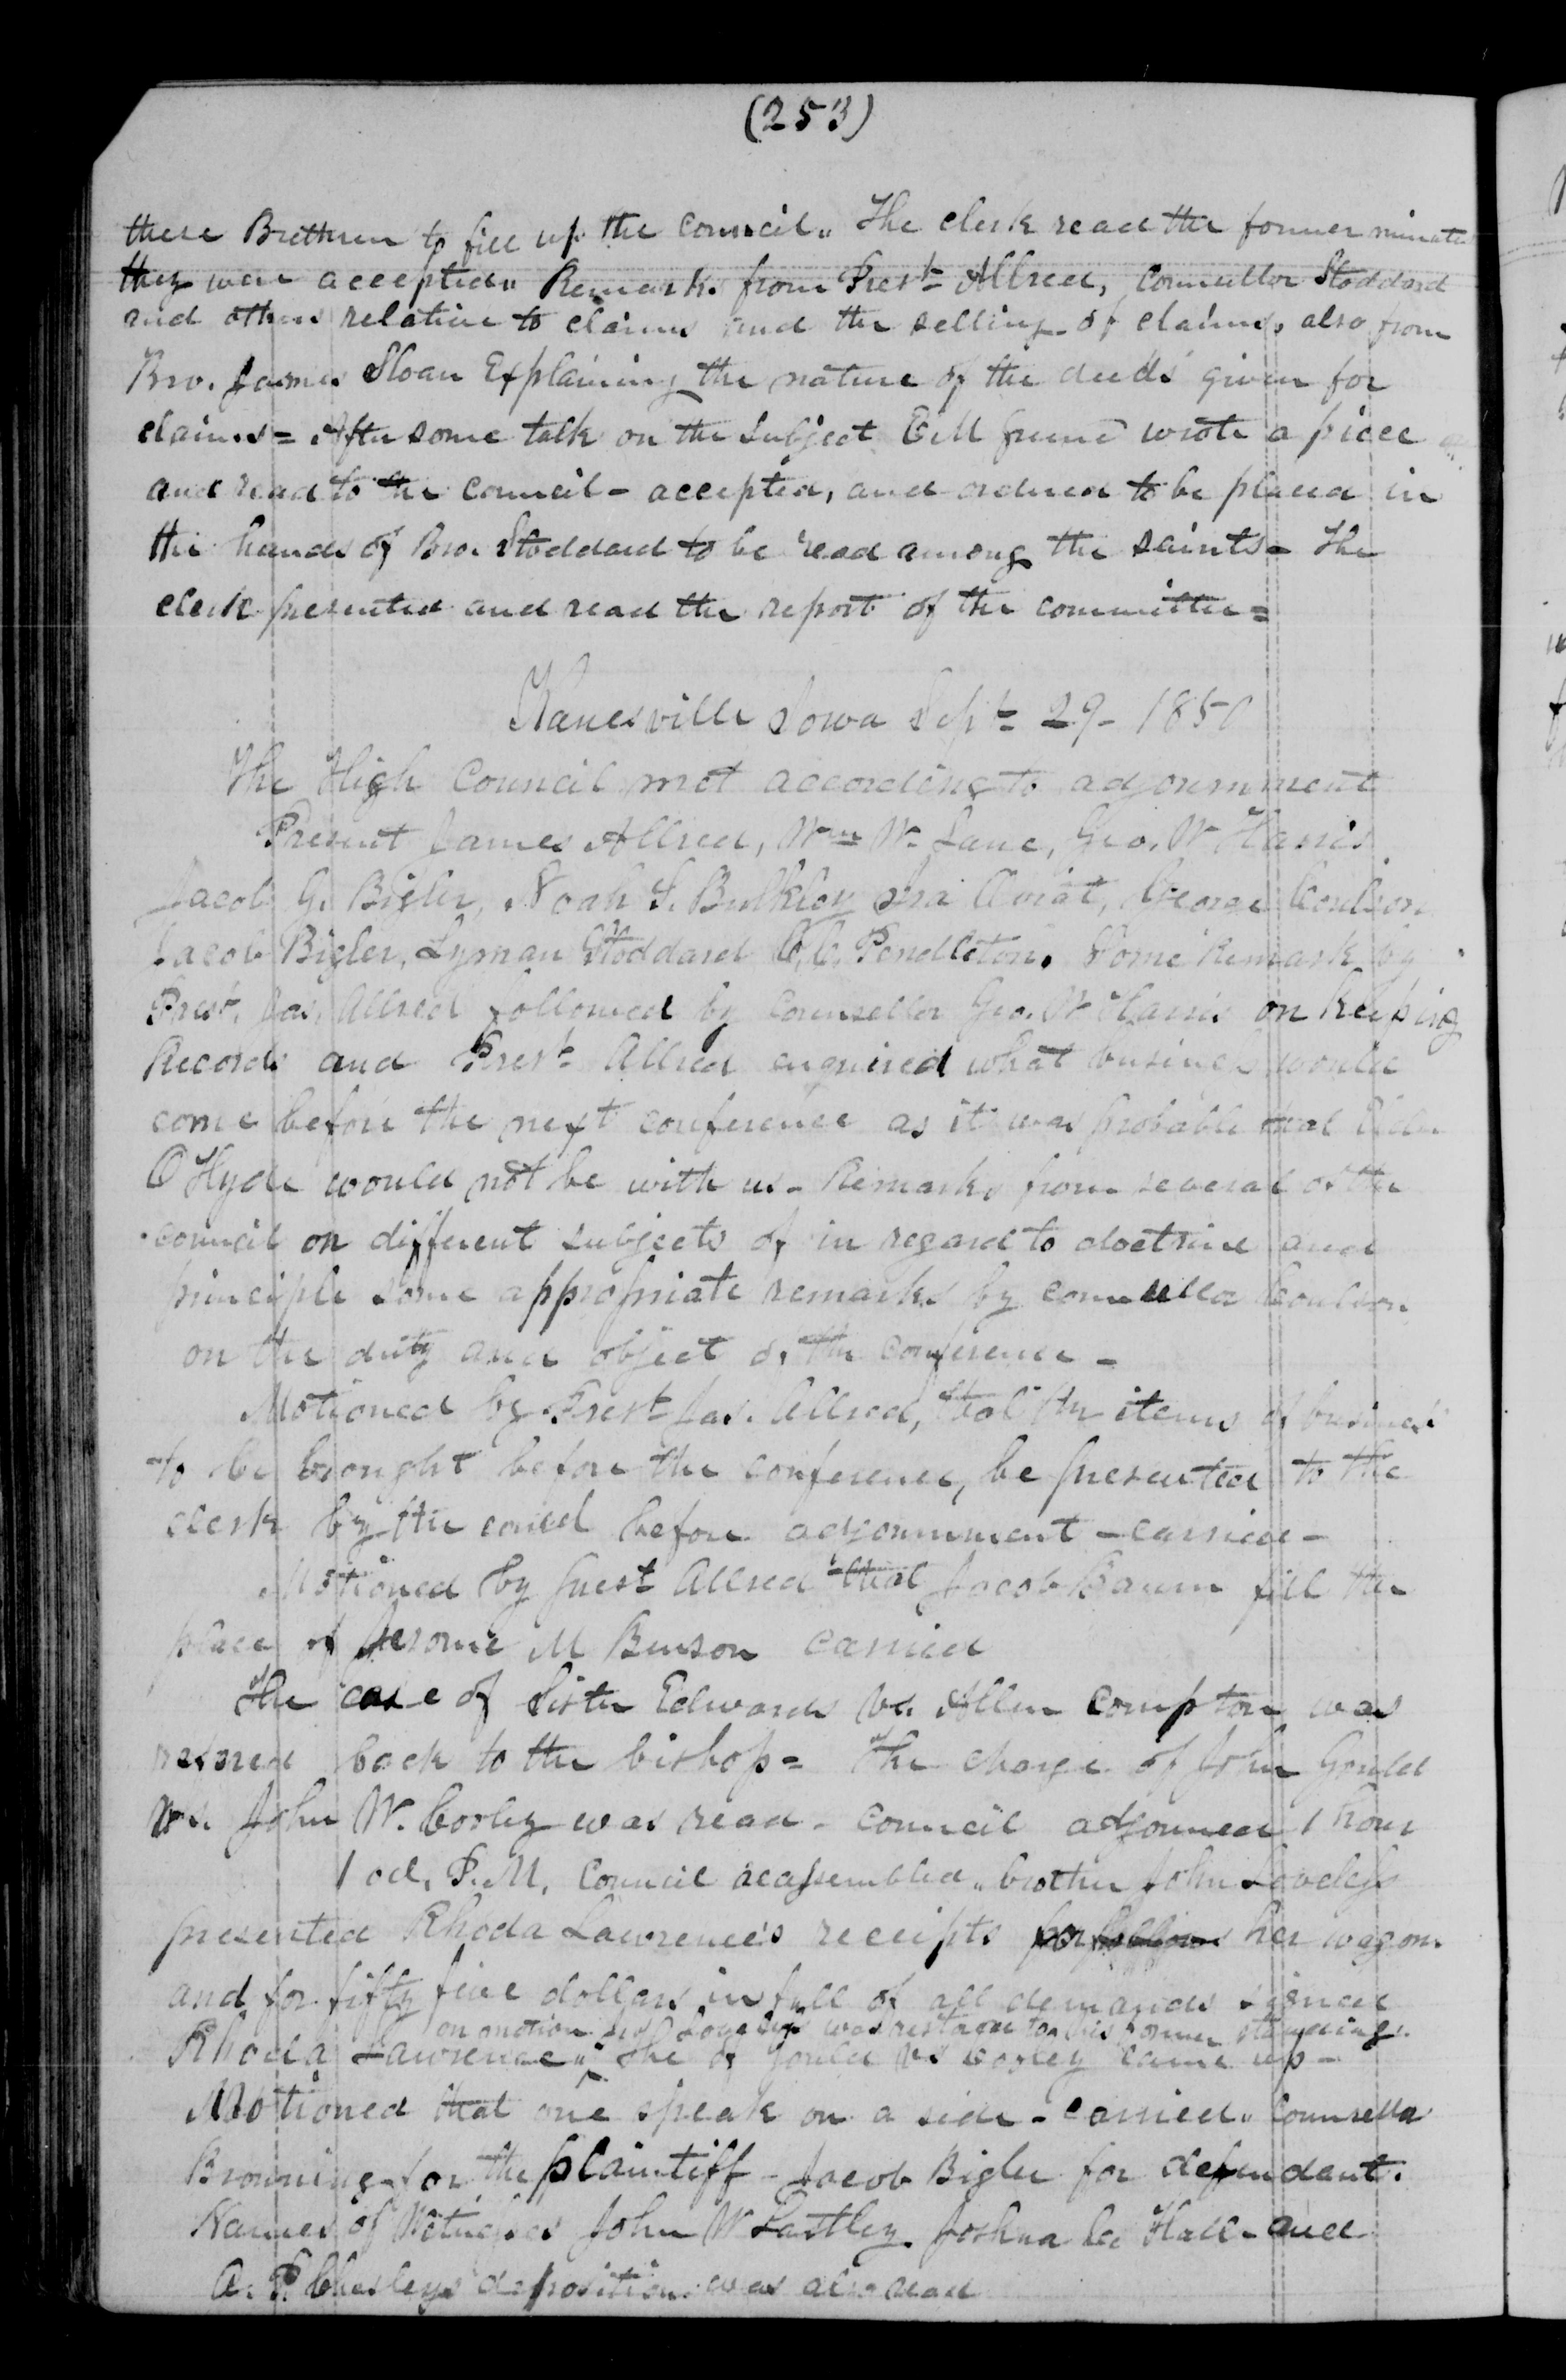 (253)
these Brethren to fill up the Council„ The clerk read the former minutes
they were accepted„ Remarks from Prest Allred, Counsellor Stoddard
and others relative to claims and the selling of claims, also from
Bro. James Sloan Explaining the nature of the deeds given for
claims= After some talk on the subject E M Greene wrote a piece
and read to the council - accepted, and ordered to be placed in
the hands of Bro. Stoddard to be read among the saints= The
clerk presented and read the report of the committee=
Kanesville Iowa Sept 29- 1850
The High Council met according to adjournment
Present James Allred, Wm W. Lane, Geo. W Harris
Jacob G. Bigler, Noah T. Bulkley Ira Oviat, George Coulson
Jacob Bigler, Lyman Stoddard C. C. Pendleton. Some Remark by
Prest. Jas. Allred followed by Counsellor Geo. W Harris on keeping
Records and Prest Allred enquired what business would
come before the next conference as it was probable that Elder
O Hyde would not be with us - Remarks from several of the
council on different subjects of in regard to doctrine and
principle some appropriate remarks by counsellor Coulson
on the duty and object of the conference -
Motioned by Prest Jas. Allred, that the items of business
to be brought before the conference, be presented to the
clerk by the council before adjournment - carried -
Motioned by Prest Allred that Jacob Baum fill the
place of Jerome M Benson carried
The case of Sister Edwards vs. Allen Compton was
refered back to the bishop= The charge of John Gould
vs. John W. Cooley was read - council adjourned 1 hour
1 ocl. P.M. Council reassembled„ brother John Loveless
presented Rhoda Lawrence's receipts for her wagon
and for fifty five dollars in full of all demands signed
on motion Loveless was restored to his former standing.
Rhoda Lawrence„ The of Gould vs Cooley came up -
Motioned that one speak on a side - carried„ Counsellor
Browning for the plaintiff - Jacob Bigler for defendent.
Names of Witnesses John W Lastley Joshua C. Hall and
A. P. Chesleys deposition was also read